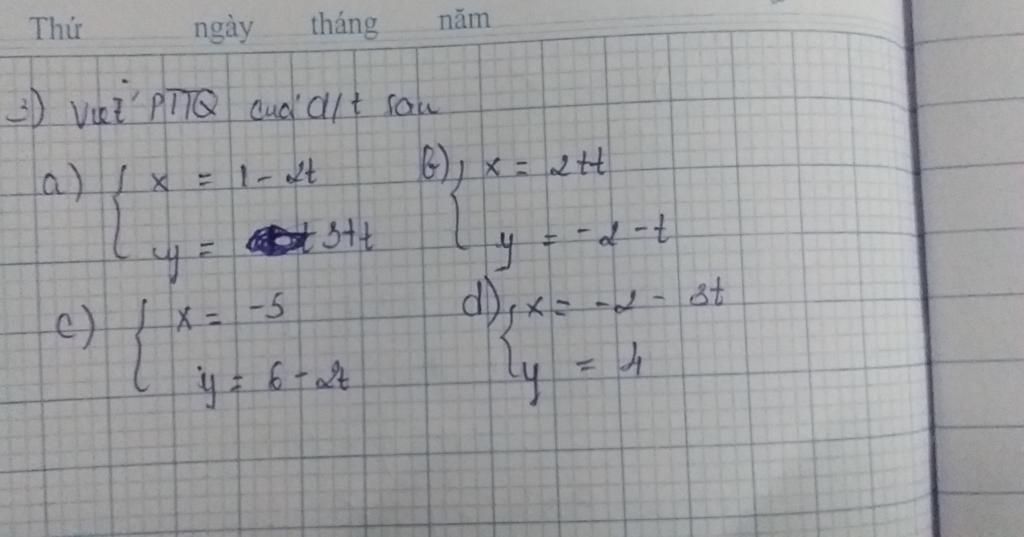 Thứ ngày tháng năm
3) Viết PTTQ của đ/t sau
a) { x = 1 - 2t
y = 3+t
b) { x = 2+t
y = -2 -t
c) { x = -5
y = 6 - 2t
d) { x = -2 - 3t
y = 4